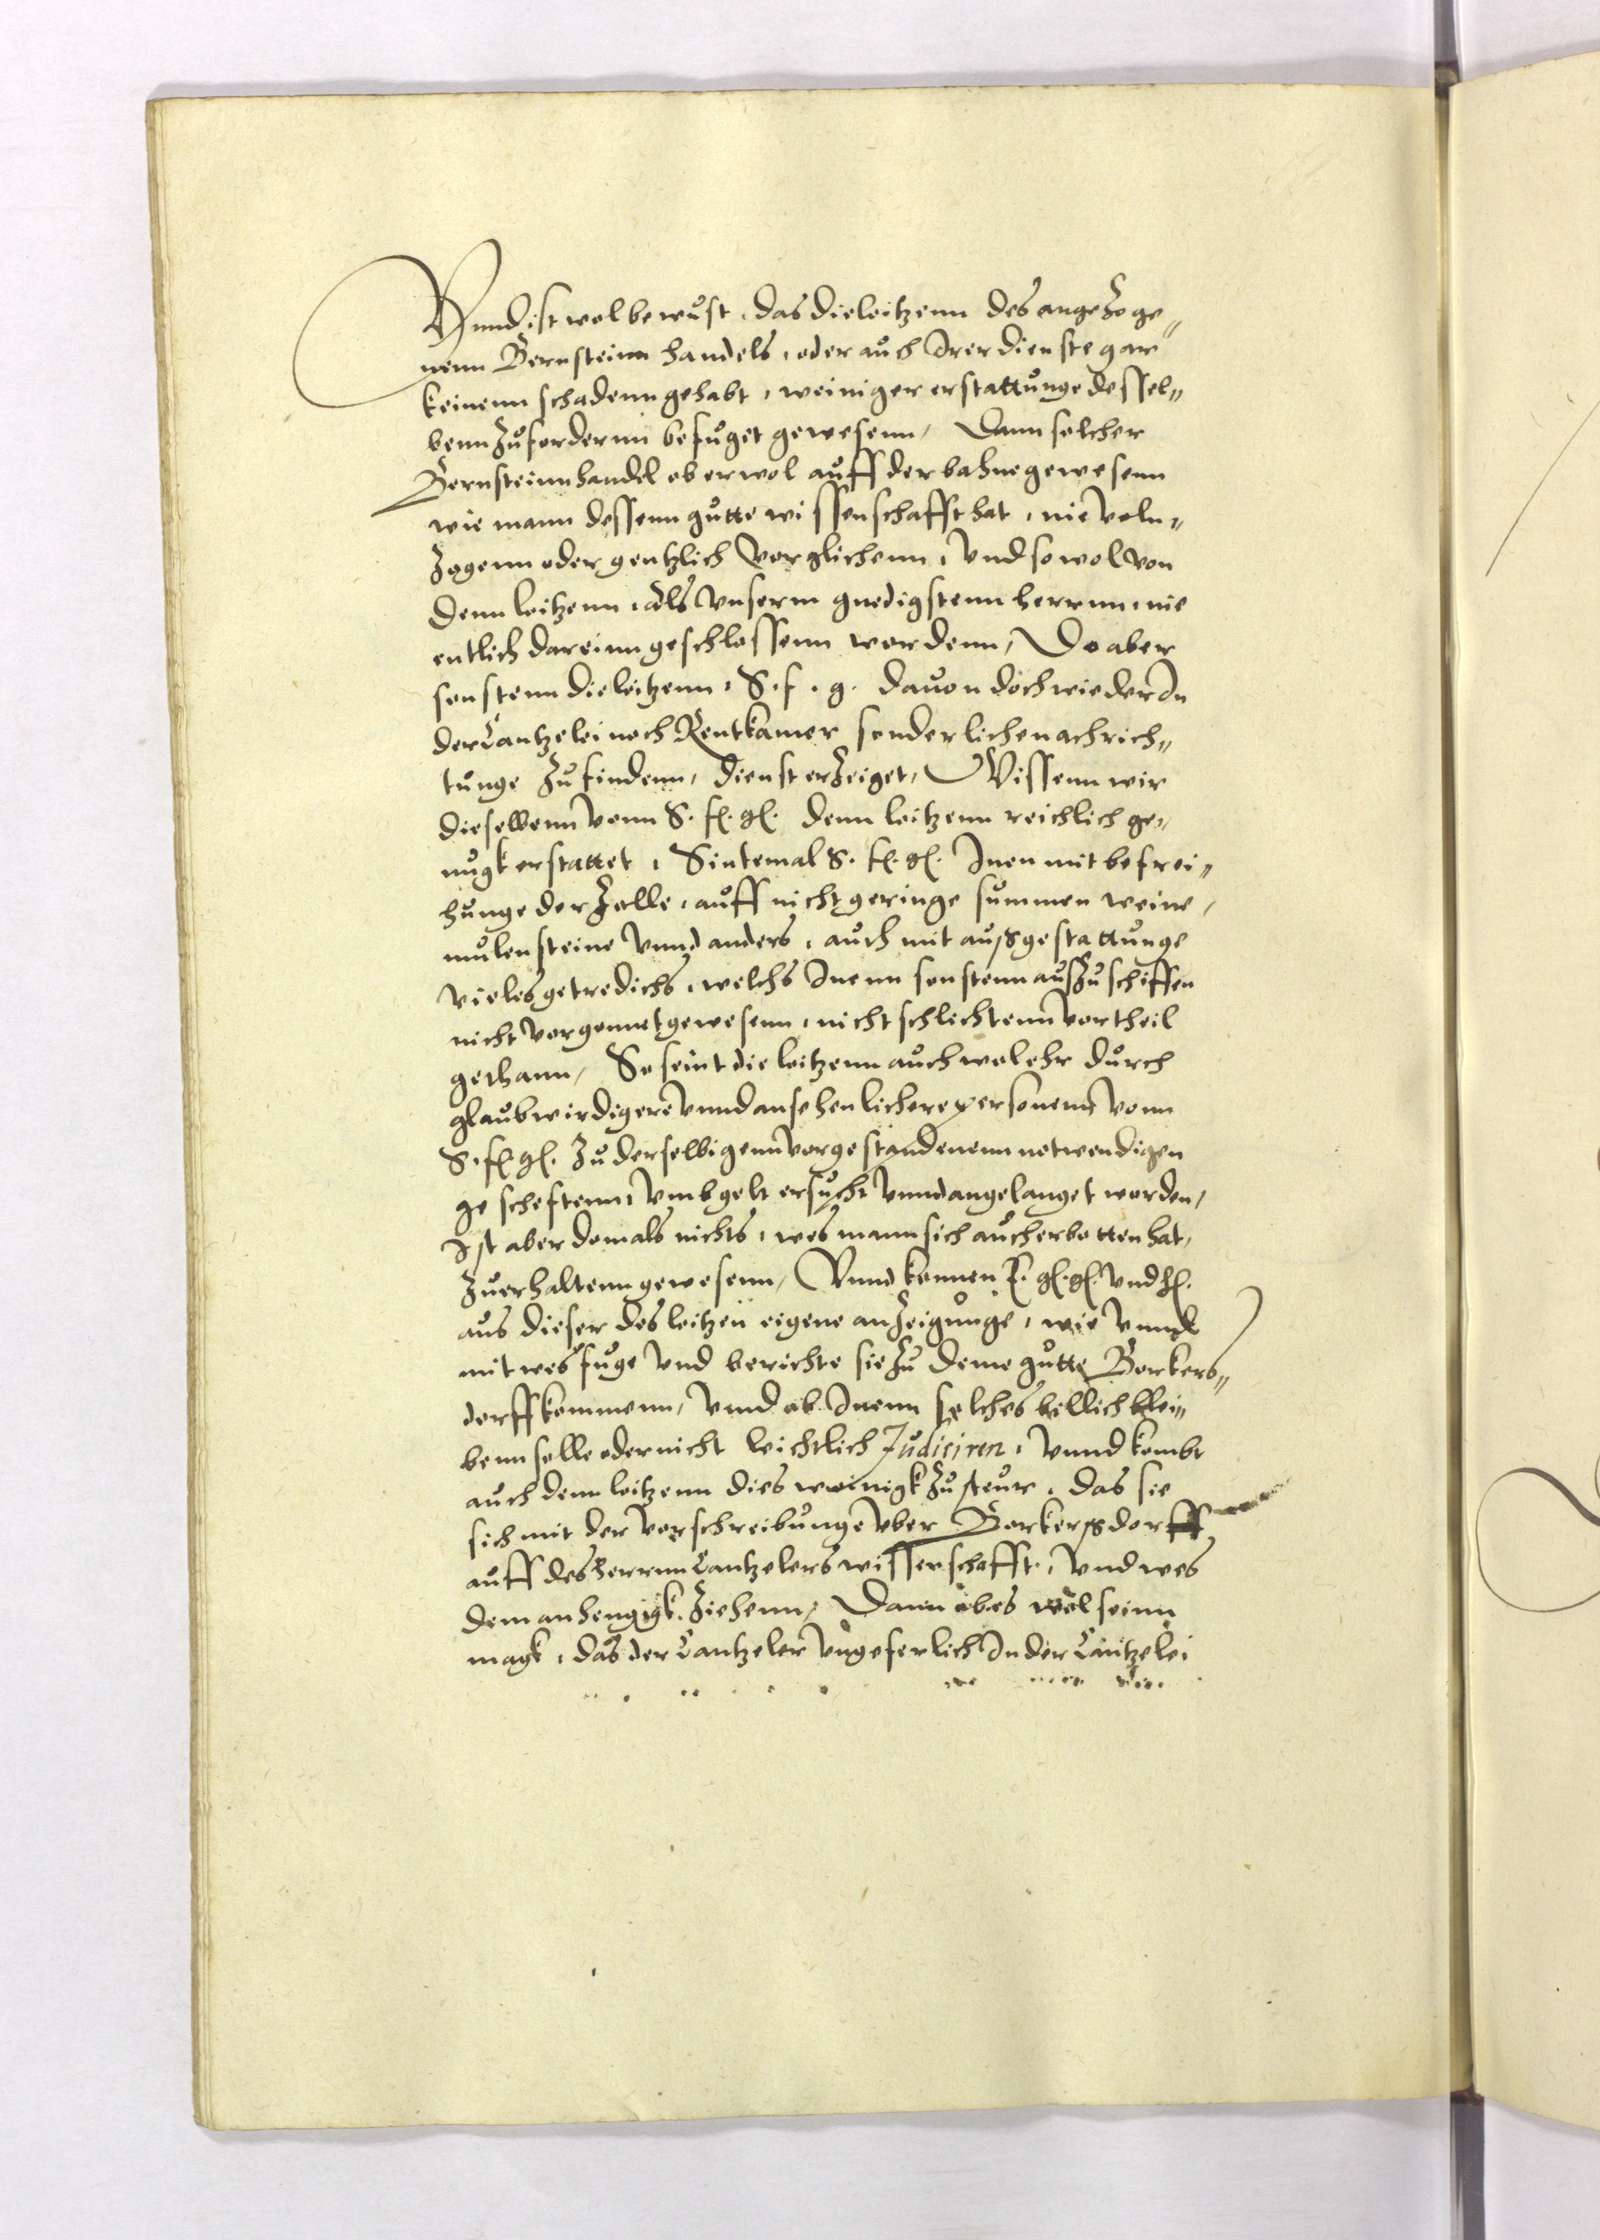 Vnnd ist wol bewust, das die leitzenn des angezoge„
nenn Bernsteinn handels, oder auch Irer dienste gar
keinenn schadenn gehabt, weiniger erstattunge dessel„
benn zufordernn befuget gewesenn, Dann solcher
Bernsteinnhandel ob er wol auff der bahne gewesenn
wie mann dessenn gutte wissenschafft hat, nie voln„
zogenn oder gentzlich vorglichenn, vnd so wol von
denn leitzenn, als vnserm gnedigstenn herrnn, nie
entlich dareinn geschlossenn wordenn, Do aber
sonstenn die leitzenn, S. f. g. dauon doch wieder In
der Cantzelei noch Rentkamer sonderliche nachrich„
tunge zufindenn, dienst erzeiget, Wissenn wir
dieselbenn vonn S. f. g. denn leitzenn reichlich ge„
nugk erstattet, Sintemal S. f. g. Inen mit befrei„
hunge der Zolle, auff nicht geringe summen weine,
mulensteine vnnd anders, auch mit außgestattunge
vieles getredichs, welchs Inenn sonstenn auszuschiffen
nicht vorgonnet gewesenn, nicht schlechtenn vortheil
gethann, So seint die leitzenn auch wol ehr durch
glaubwirdigere vnnd ansehenlichere personenn vonn
S. f. g. zu derselbigenn vorgestandenenn notwendigen
gescheftenn, vmb gelt ersucht vnnd angelanget worden,
Ist aber domals nichts, wes mann sich auch erbotten hat,
zuerhaltenn gewesenn, Vnnd konnen E. g. g. vnd h.
aus dieser des leitzen eigene anzeigunge, wie vnnd
mit wes fuge vnd berichte sie zu deme gutte Borkers„
dorff kommenn, vnnd ob Inenn solches billich blei„
benn solle oder nicht leichtlich Judiciren, vnnd kombt
auch denn leitzenn dies weinigk zu steur, das sie
sich mit der vorschreibunge vber Borkerßdorff
auff des herrnn Cantzelers wissenschafft, vnd wes
dem anhengigk, ziehenn, Dann ob es wol seinn
magk, das der Cantzeler vngeferlich In der Cantzelei